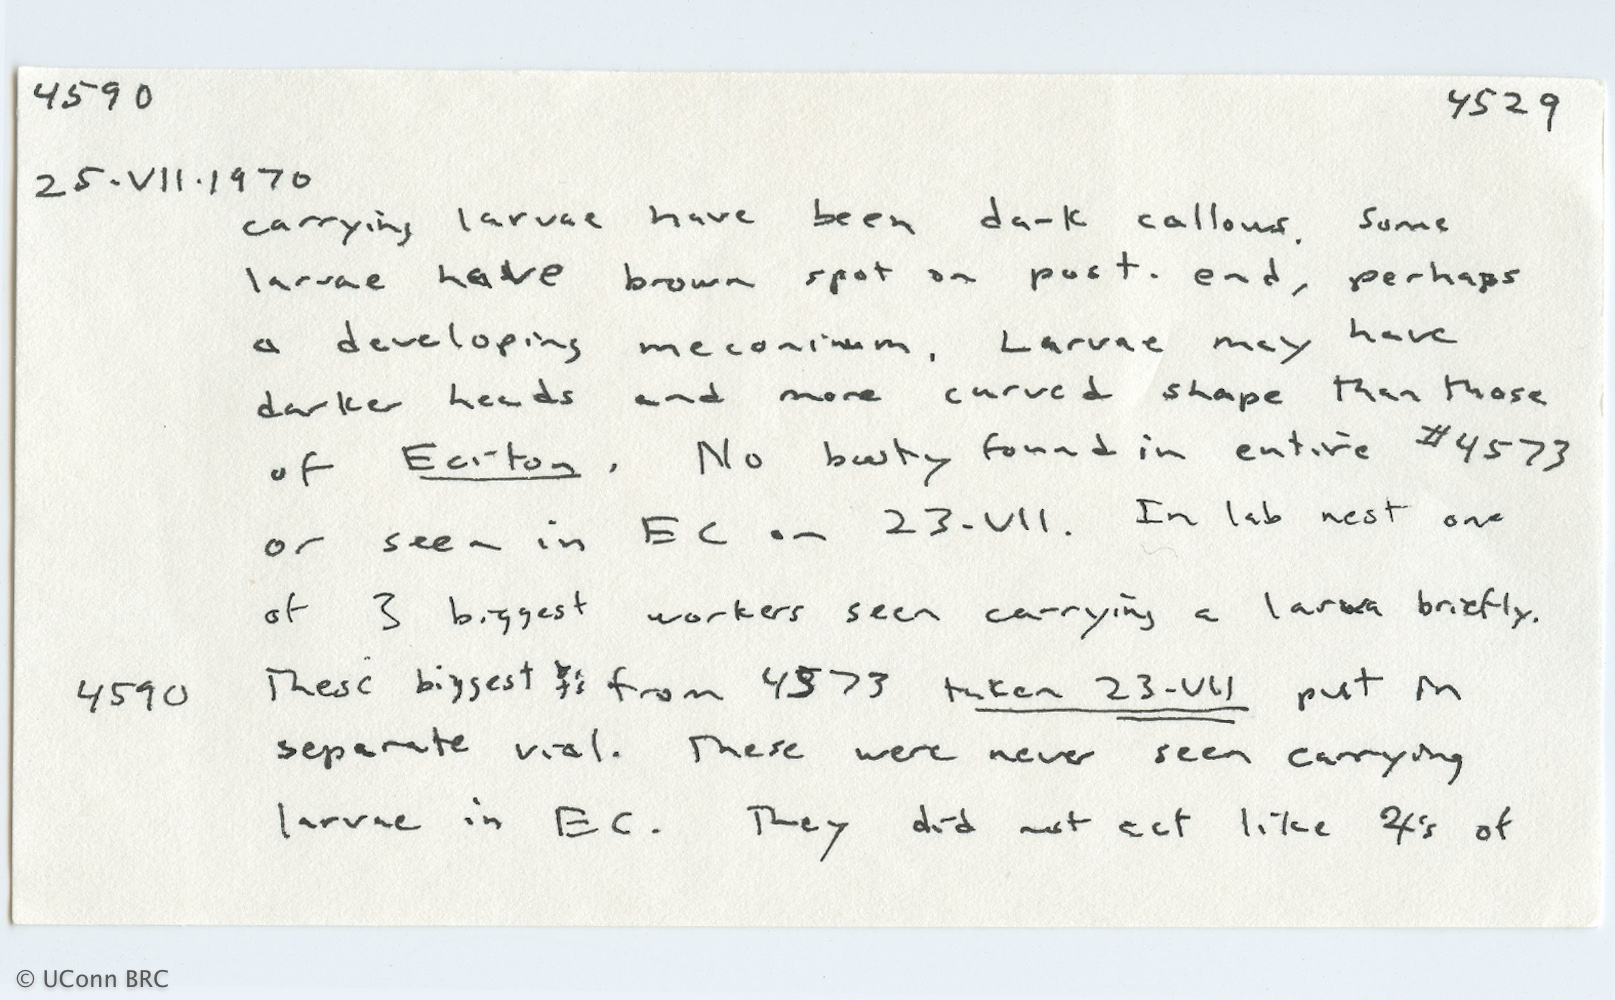 4590 4529
25·VII·1970
carrying larvae have been dark callows. Some
larvae have brown spot on post. end, perhaps
a developing meconium. Larvae may have
darker heads and more curved shape than those
of Eciton. No booty found in entire #4573
or seen in EC on 23-VII. In lab nest one
of 3 biggest workers seen carrying a larva briefly.
4590 These biggest ☿'s from 4573 taken 23-VII put in
separate vial. These were never seen carrying
larvae in EC. They did not act like ♃'s of
© UConn BRC